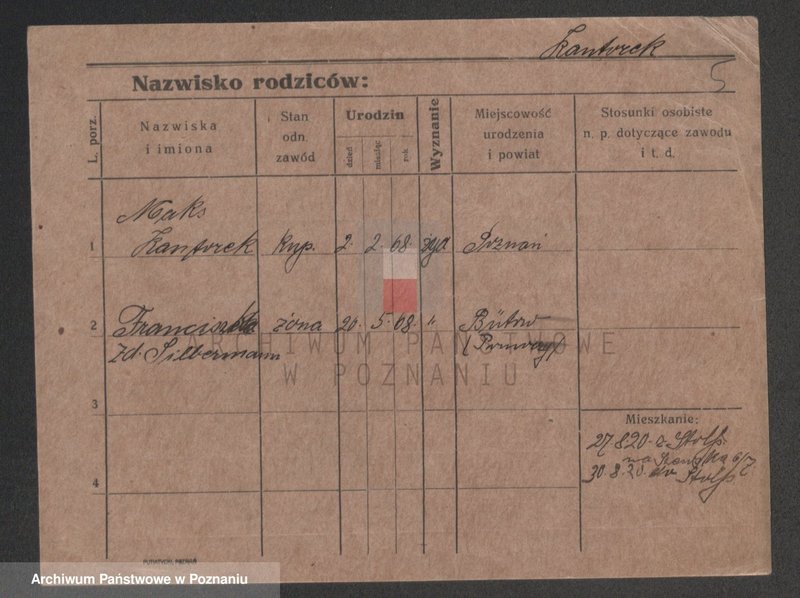 Kantorek
5
Nazwisko rodziców:
L. porz.
Nazwiska
i imiona
Stan
odn.
zawód
Urodzin
dzień
miesiąc
rok
Wyznanie
Miejscowość
urodzenia
i powiat
Stosunki osobiste
n. p. dotyczące zawodu
i t. d.
Maks
1 Kantorek kup. 2. 2. 68. Poznań
2 Franciszka żona 20. 5. 68. " Bütow
zd. Silbermann
ARCHIWUM PAŃSTWOWE
W POZNANIU
3
Mieszkanie:
27 8 20 z Stolp.
na 6/7
30. 8. 20. do Stolp
4
PUTIATYCKI, POZNAŃ
Archiwum Państwowe w Poznaniu